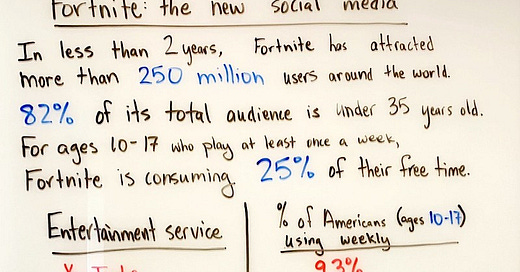 Fortnite: the new social media
In less than 2 years, Fortnite has attracted
more than 250 million users around the world.
82% of its total audience is under 35 years old.
For ages 10-17 who play at least once a week,
Fortnite is consuming 25% of their free time.
Entertainment service
% of Americans (ages 10-17)
using weekly
93%